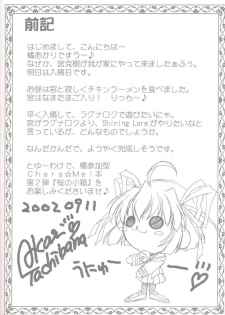 前記
はじめまして、こんにちは～
橘あかりですぅ～♪
なぜか、宮克樹が我が家にやって来ましたぁふぅ。
明日は入稿日です。
お昼は宮と寂しくチキンラーメンを食べました。
宮はなまたまご入り！ りっち～♪
早く入稿して、ラグナロクで遊びたいにゃ。
宮がラグナロクより、Shining Loreがやりたいなと
言っているが、どんなものでしょうか。
なんだかんだで、ようやく完成しそうです。
とゆ～わけで、橘参加型
Chara☆Mel本
第2弾『桜の小箱』を
お楽しみくださいませ♪
2002 09 11
Akari
Tachibana
うにゅ～